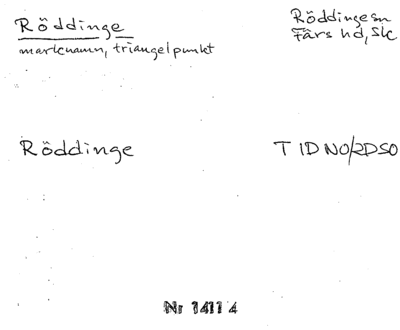 Röddinge
marknamn, triangelpunkt
Röddinge sn
Färs hd, Sk
Röddinge
T 1D NO/2D SO
Nr 1411 4